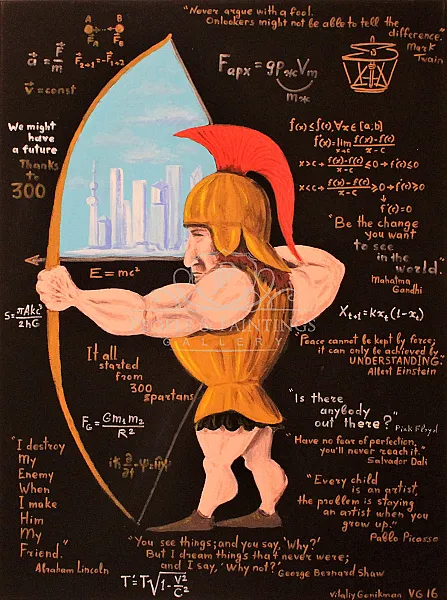 "Never argue with a fool.
Onlookers might not be able to tell the
difference."
Mark
Twain
A B
F_A F_B
a⃗ = F⃗/m
F⃗₂→₁ = -F⃗₁→₂
v⃗ = const
F_apx = gρ_ж V_m
m_ж
We might
have a
future
Thanks
to
300
f(x) ≤ f(c), ∀x ∈ [a; b]
f'(x) = lim x→c f(x) - f(c) / x - c
x > c → f(x) - f(c) / x - c ≤ 0 → f'(c) ≤ 0
x < c → f(x) - f(c) / x - c ≥ 0 → f'(c) ≥ 0
↓
f'(c) = 0
"Be the change
you want
to see
in the
world."
Mahatma
Gandhi
E = mc²
S = πAkc³/2hG
X_{t+1} = kx_t (1 - x_t)
PAINTINGS
GALLERY
"Peace cannot be kept by force;
it can only be achieved by
UNDERSTANDING."
Albert Einstein
It all
started
from
300
spartans
F_G = Gm₁m₂/R²
"Is there
anybody
out there?"
Pink Floyd
"Have no fear of perfection,
you'll never reach it."
Salvador Dali
"I destroy
My
Enemy
When
I make
Him
My
Friend."
Abraham Lincoln
"Every child
is an artist,
the problem is staying
an artist when you
grow up."
Pablo Picasso
"You see things; and you say, 'Why?'
But I dream things that never were;
and I say, 'Why not?'"
George Bernard Shaw
T' = T√1 - V²/C²
Vitaliy Gonikman VG 16